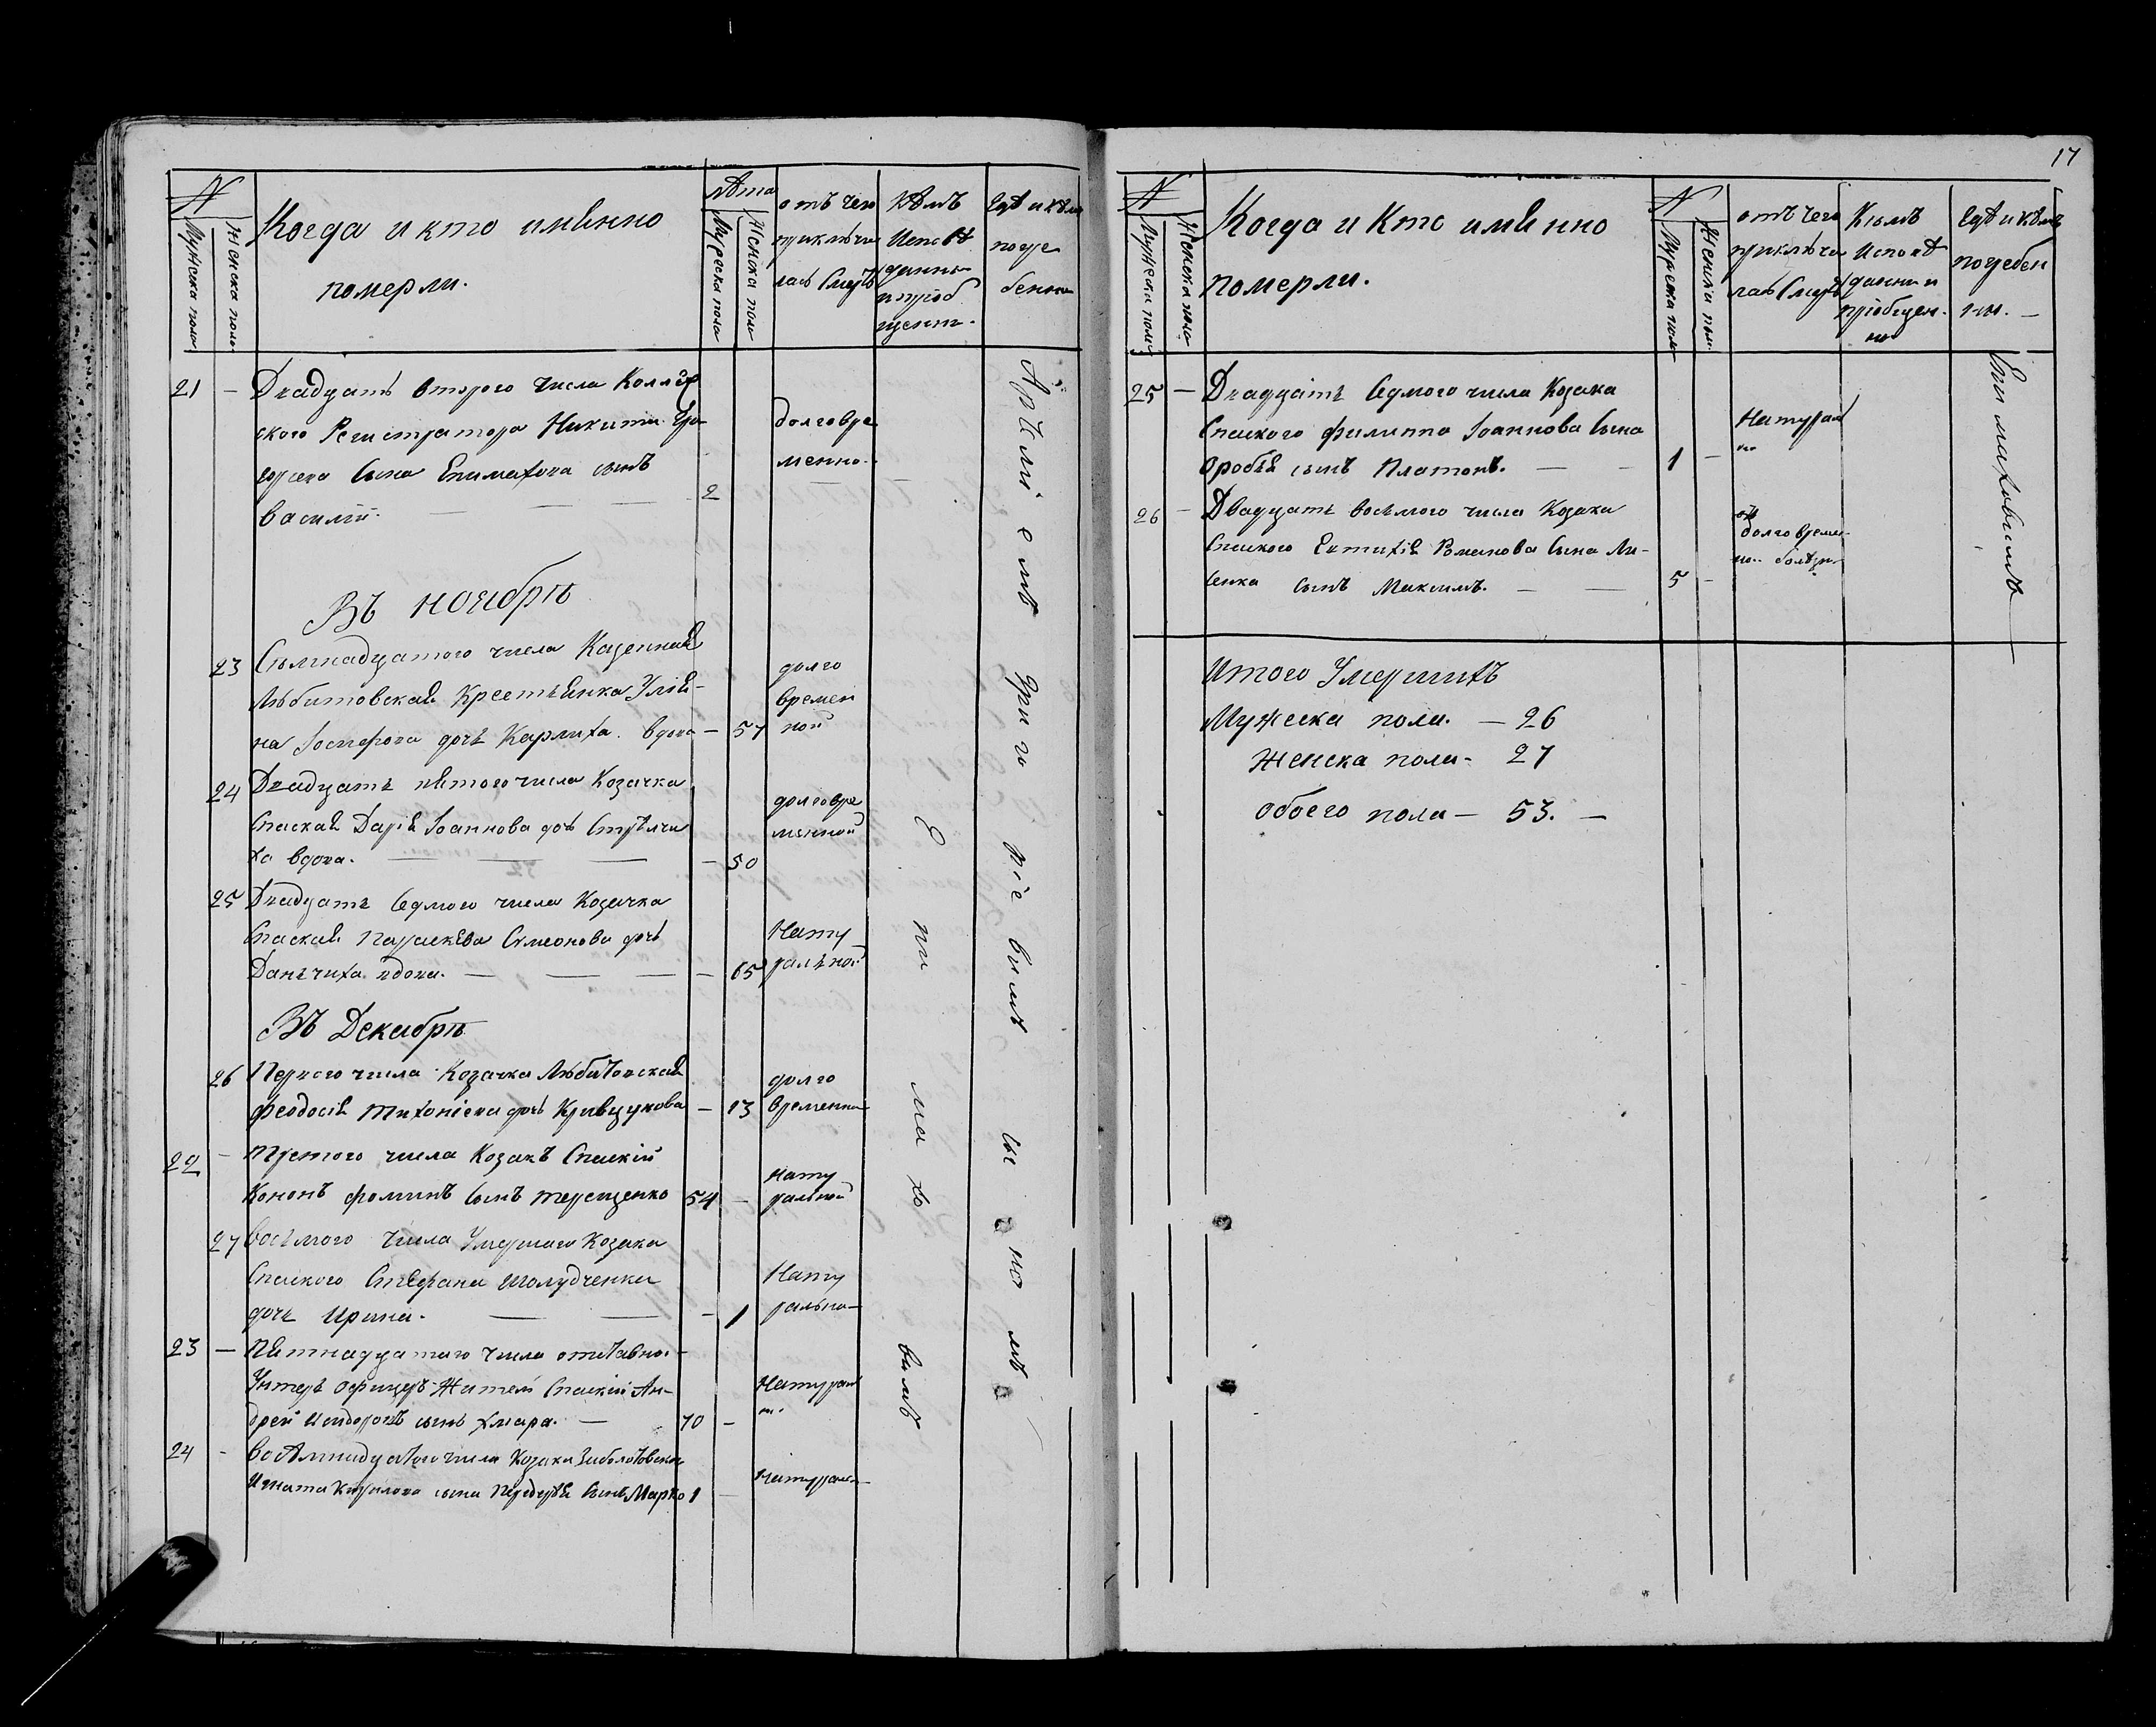 17
N
Мужеска пола
Женска пола
Когда и кто имѣнно
померли.
Лѣта
Мужеска пола
Женска пола
отъ чего
приключи
лась Смерть
Кѣмъ
Исповѣ
данны
и пріоб
щены.
Гдѣ и кѣмъ
погре
бенны
21 — Двадцать второго числа Коллеж
ского Регистратора Никиты
сына Епимахова сынъ
Василій. — — 2
долговре
менно.
Въ ноябрѣ
23 Семнадцатого числа Казенная
Любитовская Крестьянка Улія-
на Іосифова дочь Карпиха. вдова — 57
долго
времен
ной
24 Двадцать пятого числа Козачка
Спаская Дарія Іоаннова дочь Стрѣлчи
ха вдова. — — — 50
долговре
менной
25 Двадцать седмого числа Козачка
Спаская Параскѣва Симеонова дочь
Данчиха вдова. — — — 65
Нату
ральной
Въ Декабрѣ
26 Первого числа Козачка Любитовская
Феодосія Тихоніева дочь Кривцунова — 13
долго
временно
22 — Третого числа Козакъ Спаскій
Кононъ Фоминъ сынъ Терещенко 54 —
нату
ральной
27 Восьмого числа Умершого Козака
Спаского Стефана Шолудченка
дочь Ирина. — — — 1
Нату
рально
23 — Пятнадцатого числа отставной
Унтеръ офицеръ Житель Спаскій Ан-
дрей Исидоровъ сынъ Хмара. — 70 —
Натураль
но
24 — Восѣмнадцатого числа Козака Заболотовского
Игната Кирилова сына сынъ Марко 1
Натурально
Епимаховимъ
Іереемъ Григоріевимъ
N
Мужеска пола
Женска пола
Когда и Кто имѣнно
померли.
N
Мужеска пола
Женска пола
отъ чего
приключи
лась Смерть
Кѣмъ
Исповѣ
данны и
пріобщен-
ны
Гдѣ и кѣмъ
погребен
ны. —
25 — Двадцать Седмого числа Козака
Спаского Филиппа Іоаннова Сына
сынъ Платонъ. — — 1 —
Натураль
но
26 — Двадцать восьмого числа Козака
Спаского Евтихія Романова Сына Ли-
сенка сынъ Максимъ. — — 5 —
отъ
долговремен-
но болѣзни
Епимаховимъ
Итого Умершихъ
Мужеска пола. — 26
Женска пола — 27
обоего пола — 53. —